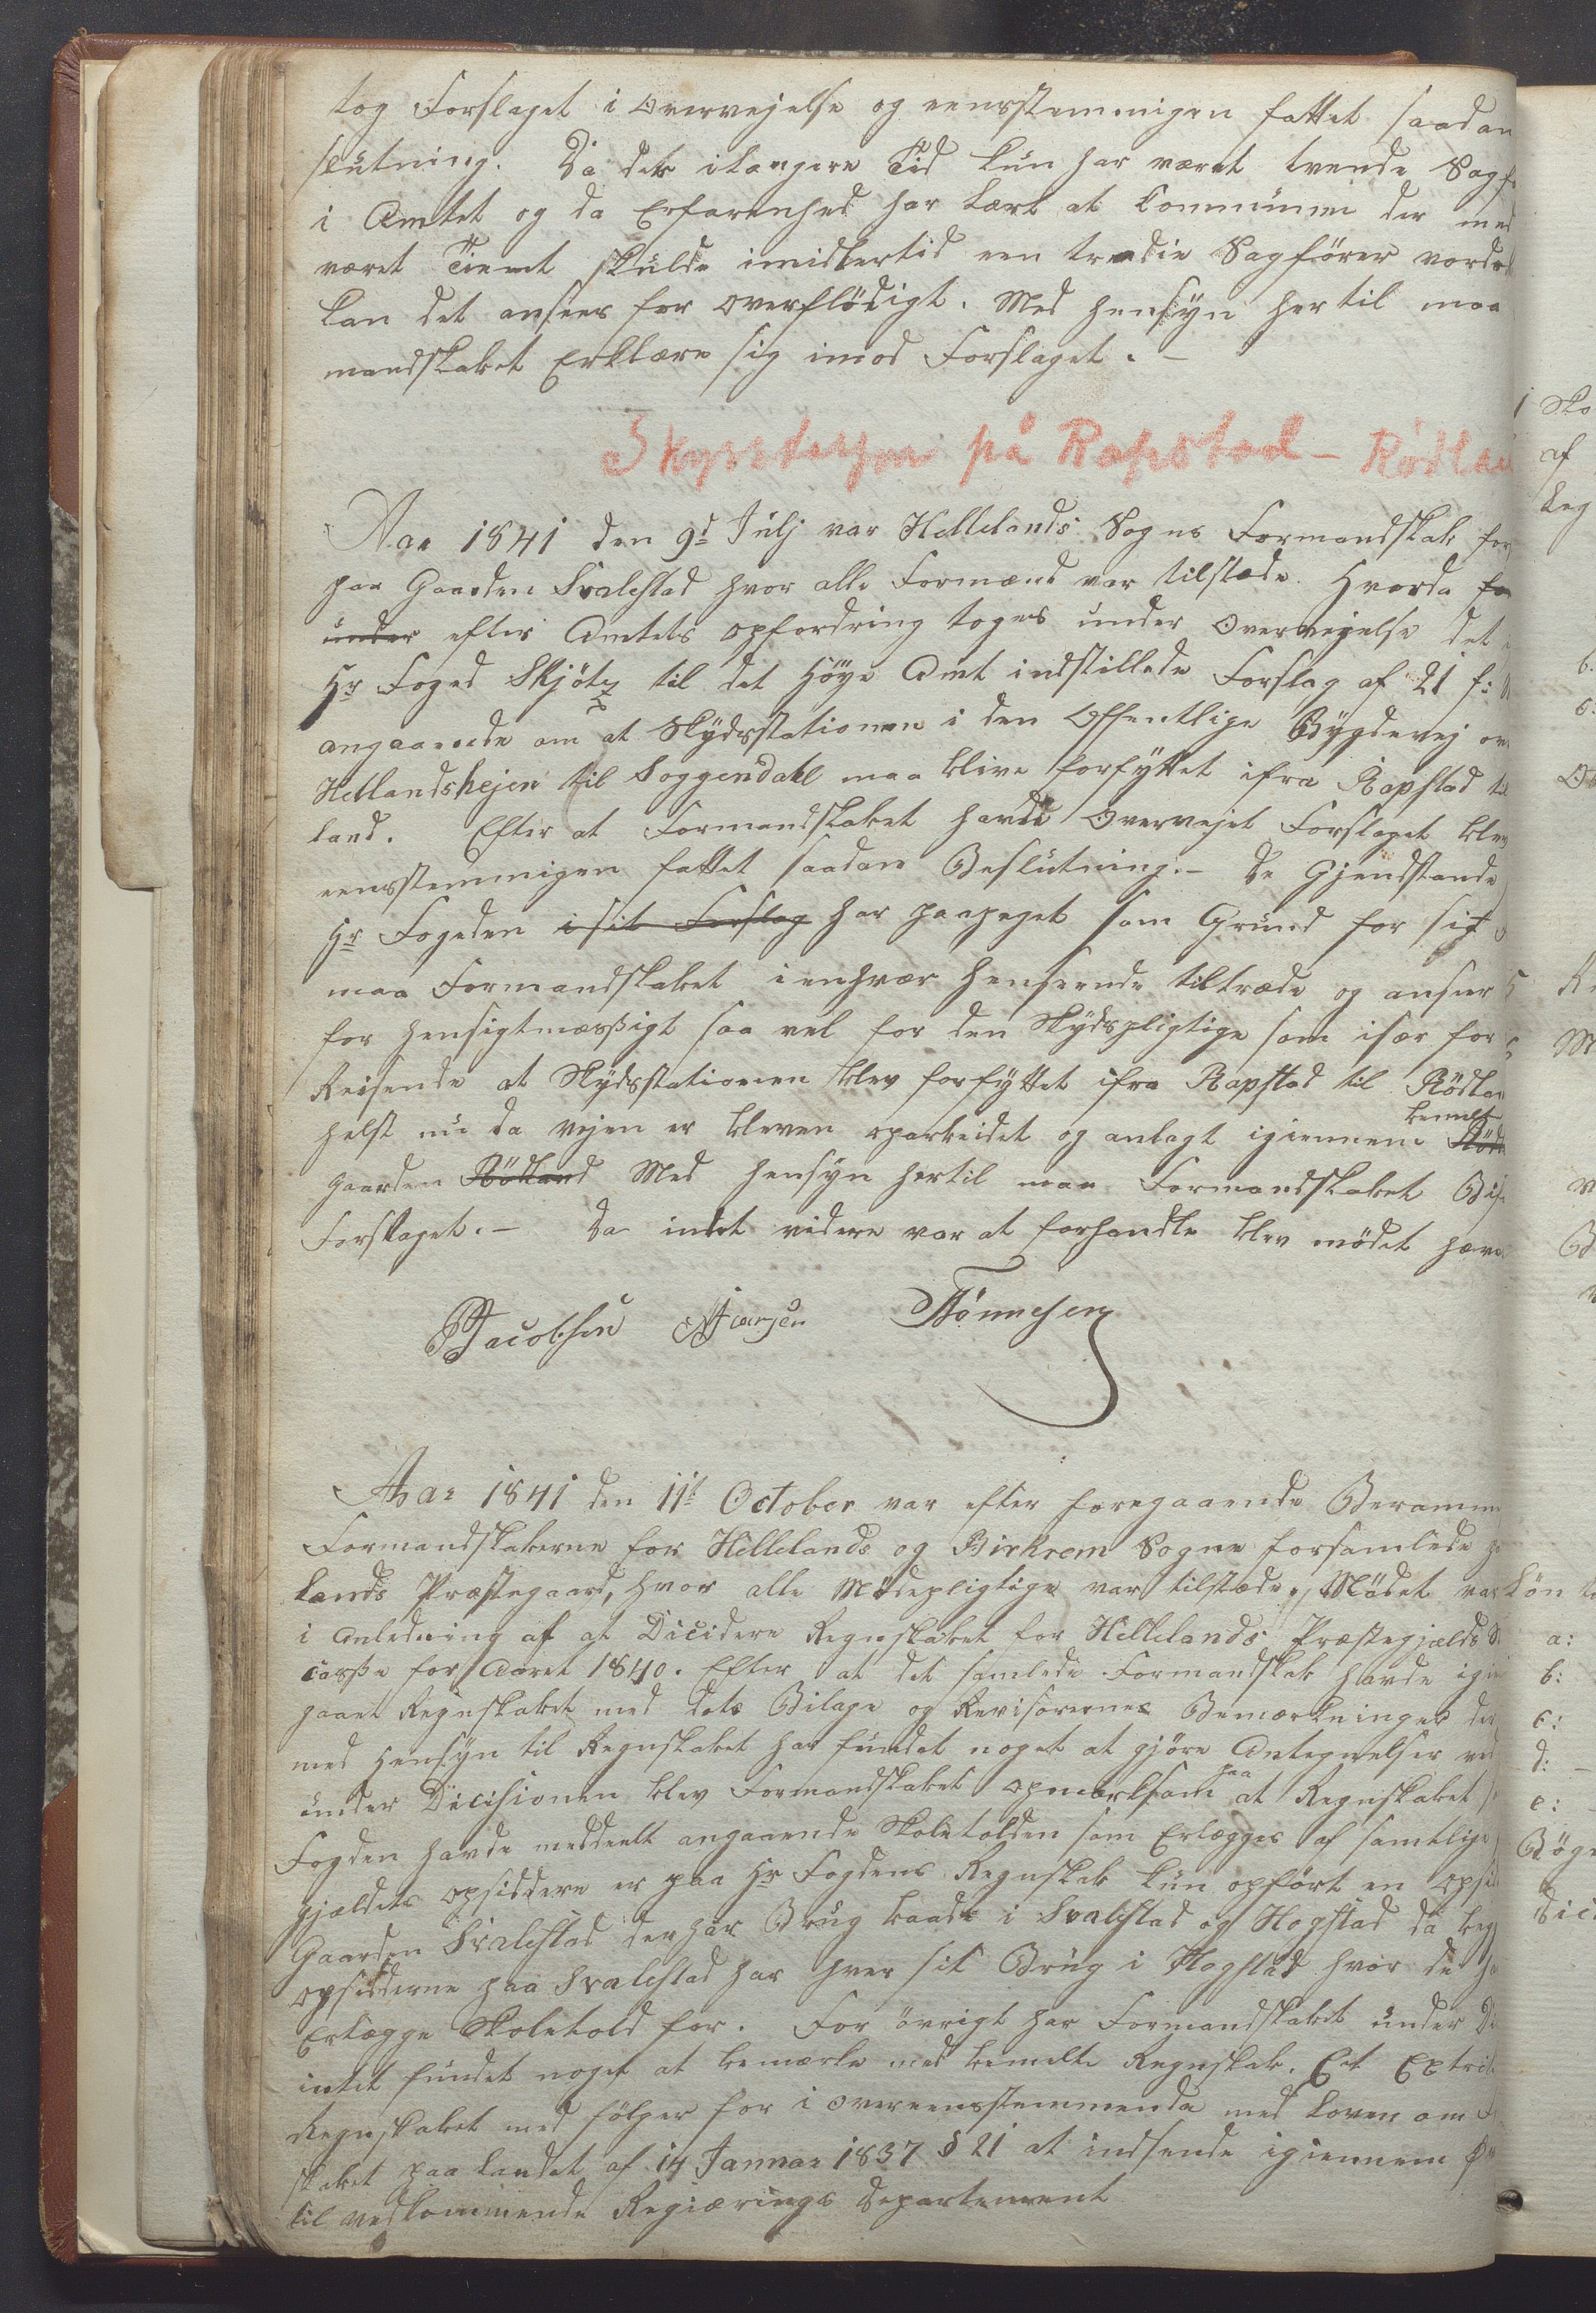 tog Forslaget i Overvejelse og eensstemmigen fattet saadan
slutning. Da det i længere Tid kun har været tvende Sagf
i Amtet og da Erfarenhed har lært at Communen der med
været Tient skulde imidlertid een tredie Sagfører vorde
kan det ansees for overflödigt. Med hensyn her til maa
mandskabet Erklære sig imod Forslaget. -
Skysstasjon på Rapstad - Rødlan
Aar 1841 den 9d Julj var Hellelands Sogns Formandskab for
paa Gaarden Svalestad hvor alle Formænd var tilstæde. Hvorda
under efter Amtets opfordring toges under Overvejelse det
Hr Foged Skjötz til det Höye Amt indstillede Forslag af 21 f:
angaaende om at Skydsstationen i den Offentlige Bygdevej ov
Hetlandshejen til Soggendahl maa blive forfyttet ifra Rapstad til
land. Efter at Formandskabet havde Overvejet Forslaget blev
eensstemmigen fattet saadan Beslutning:- De Gjendstande
Hr Fogeden i sit Forslag har paapeget som Grund for sit
maa Formandskabet i enhver henseende tiltræde og anseer
for hensigtmæssigt saa vel for den Skydspligtige som især for
Reisende at Skydsstationen blev forfyttet ifra Rapstad til Rödlan
helst nu da vejen er bleven oparbeidet og anlagt igiennem Röd
bemelte
gaarden Rödland Med hensyn hertil maa Formandskabet Bif
Forslaget. - Da intet videre var at forhandle blev mödet hæve
Jacobsen Iversen Tönnesen
Aar 1841 den 11t October var efter foregaaende Beramm
Formandskaberne for Hellelands og Birkrem Sogne forsamlede
lands Præstegaard, hvor alle Mödepligtige var tilstæde, Mödet var
i Anledning af at Dicidere Regnskabet for Hellelands Præstegjælds
casse for Aaret 1840. Efter at det samlede Formandskab havde igi
gaaet Regnskabet med dets Bilage og Revisorernes Bemærkninger der
med Hensyn til Regnskabet har fundet noget at gjöre Antegnelser ved
under Dicisionen blev Formandskabet opmærksom paa at Regnskabet
Fogden havde meddeelt angaaende Skoletolden som Erlægges af samtlige
gjældets opsiddere er paa Hr Fogdens Regnskab kun opfört en opsi
Gaarden Svalestad der har Brug baade i Svalestad og Hogstad da beg
opsidderne paa Svalestad har hver sit Brug i Hogstad hvor de
Erlægge Skoletold for. For övrigt har Formandskabet under
intet fundet noget at bemærke med bemelte Regnskab. Et Extrit
Regnskabet med fölger for i overeensstemmende med Loven om F
skabet paa Landet af 14 Januar 1837 § 21 at indsende igiennem
til vedkommende Regiærings Departement